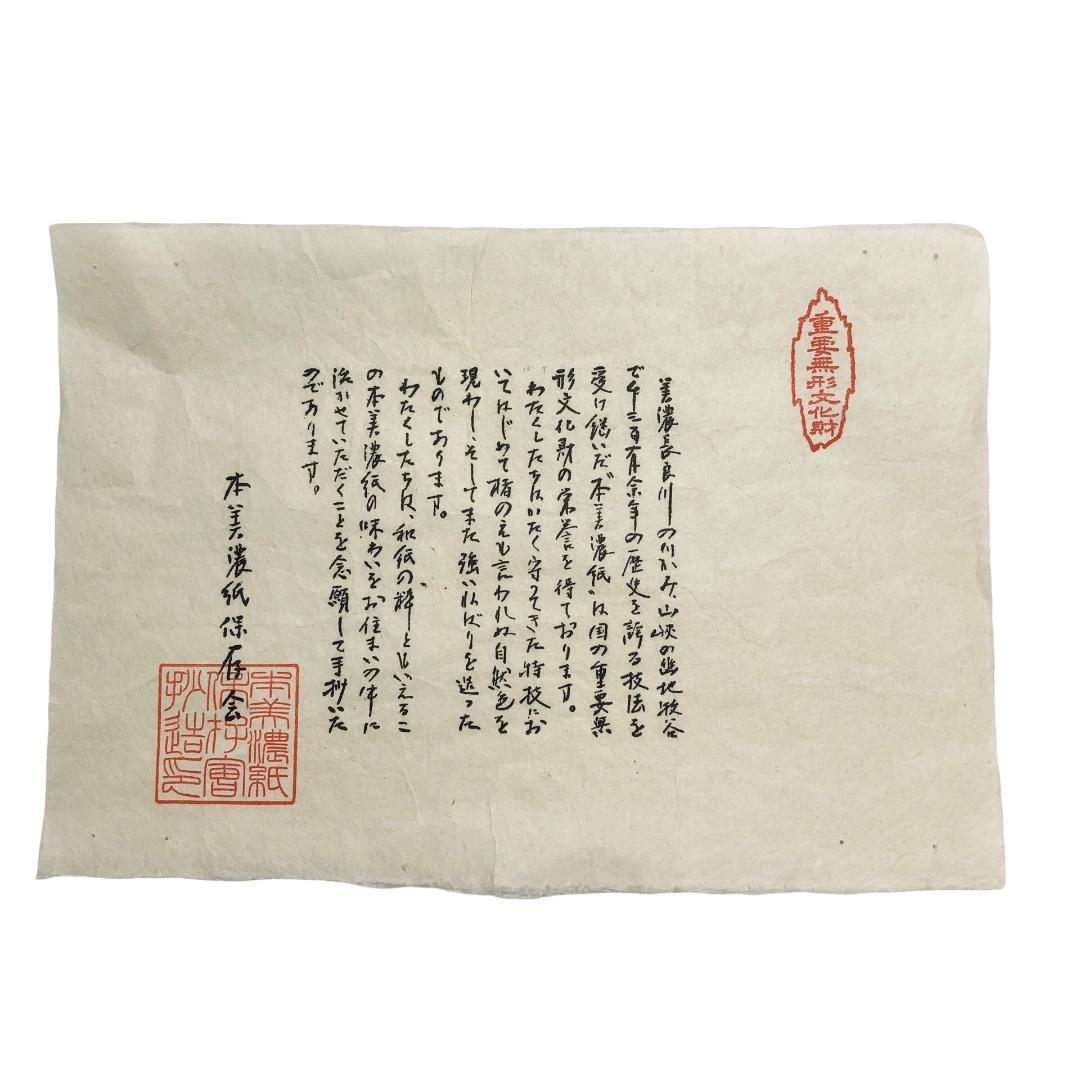 重要無形文化財
美濃長良川の川かみ、山峡の幽地牧谷
で千三百有余年の歴史を誇る技法を
受け継いだ“本美濃紙”は国の重要無
形文化財の栄誉を得ております。
わたくしたちはいたく守ってきた特技にお
いてはじめて楮のえも言われぬ自然色を
現わし、そしてまた強いねばりを造った
ものであります。
わたくしたちは、和紙の粋ともいえるこ
の本美濃紙の味わいをお住まいの中に
活かせていただくことを念願して手抄いた
のであります。
本美濃紙保存会
本美濃紙
保存會
抄造之印